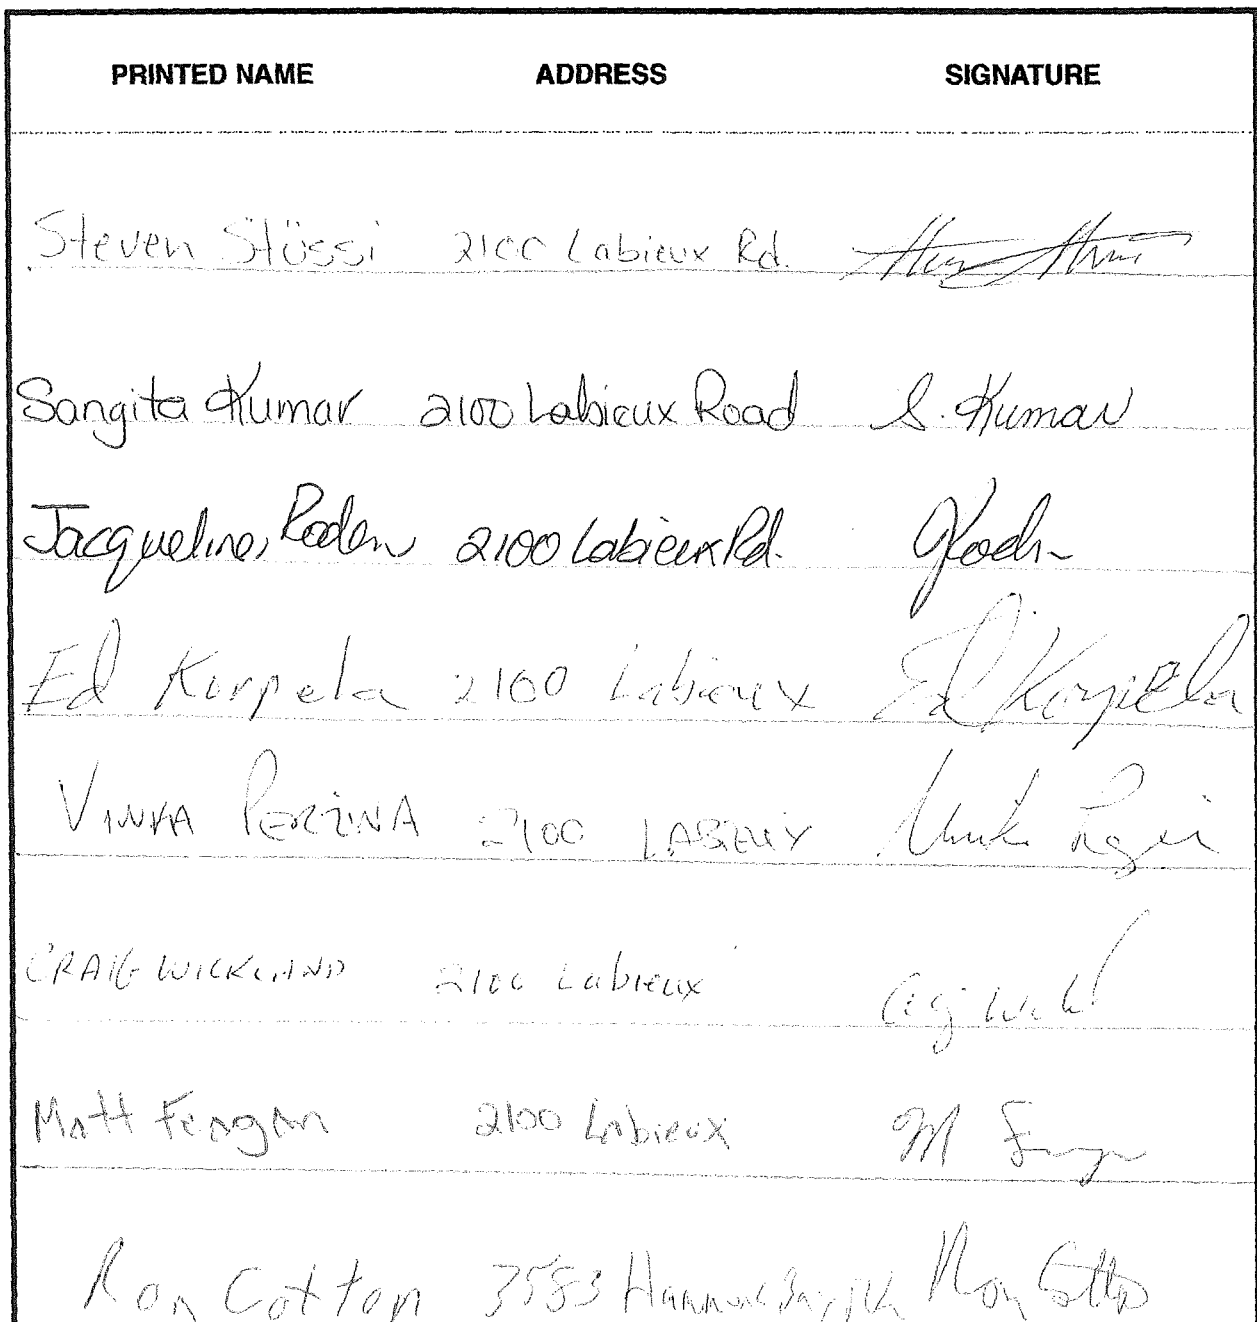 PRINTED NAME ADDRESS SIGNATURE
Steven Stüssi 2100 Labieux Rd.
Sangita Kumar 2100 Labieux Road S. Kumar
Jacqueline Roden 2100 Labieux Rd.
Ed Korpela 2100 Labieux Ed Korpela
VINKA PERZINA 2100 LABIEUX
CRAIG WICKLAND 2100 Labieux
Matt Feagan 2100 Labieux
Ron Cotton 3583 Ron Cotton